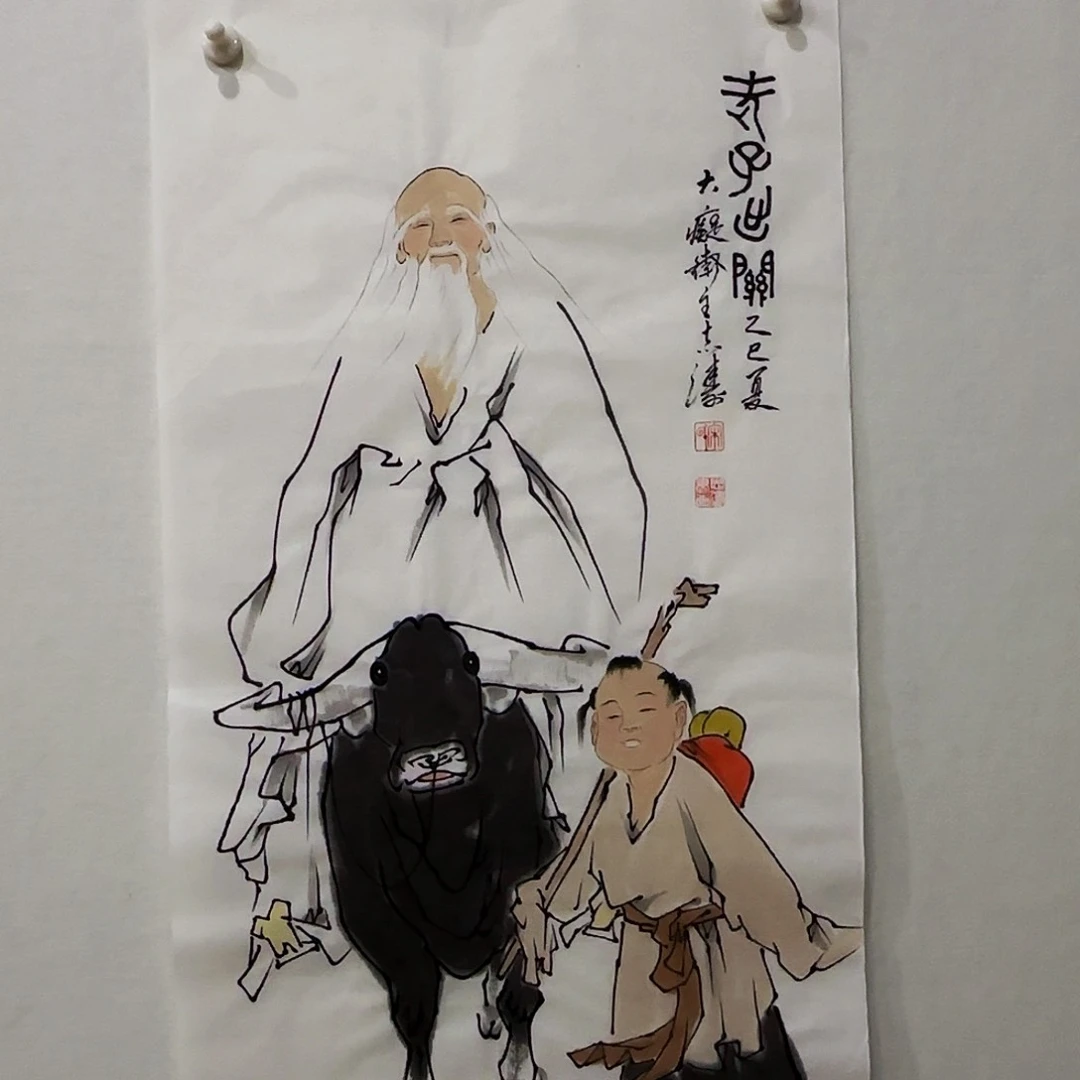 老子出關乙巳夏
大癡
主志濤